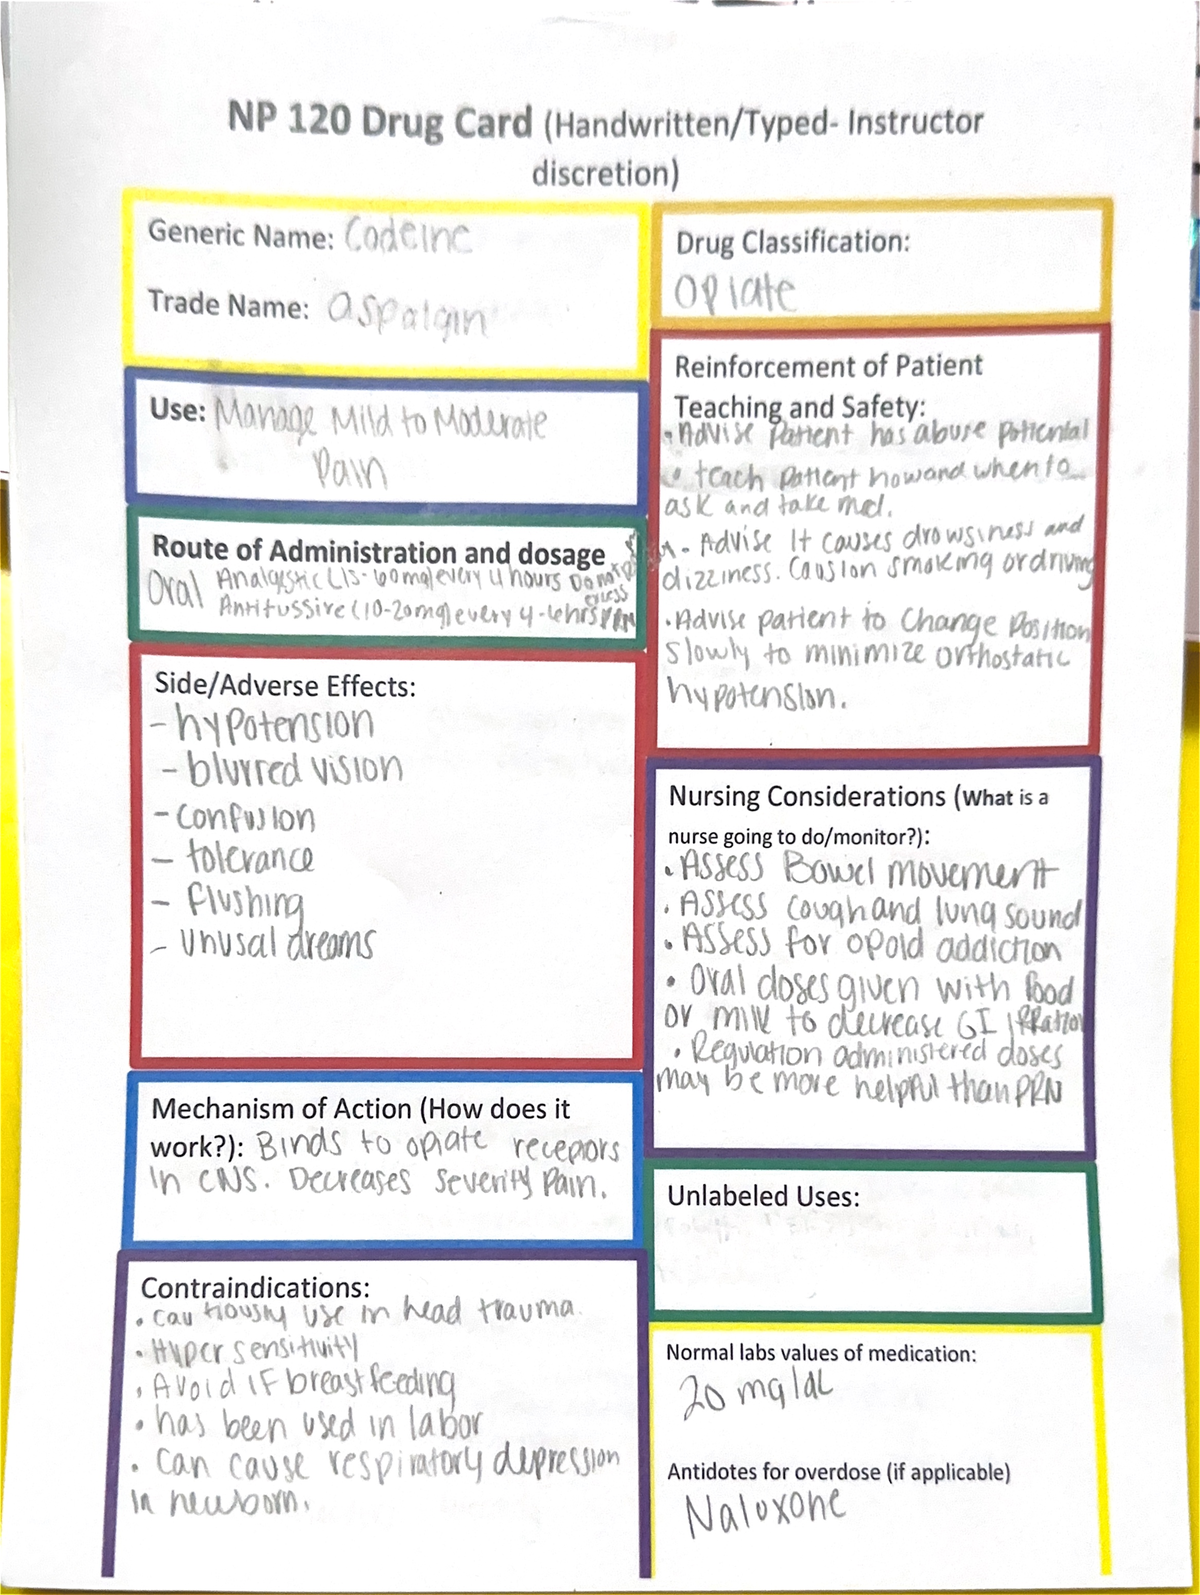 NP 120 Drug Card (Handwritten/Typed- Instructor
discretion)
Generic Name: Codeine
Trade Name: aspalgin
Use: Manage Mild to Moderate
Pain
Route of Administration and dosage
Oral Analgestic (15-60mg) every 4 hours Do not
excess
Antitussive (10-20mg) every 4-6hrs PRN
Side/Adverse Effects:
- hypotension
- blurred vision
- confusion
- tolerance
- flushing
- unusal dreams
Mechanism of Action (How does it
work?): Binds to opiate receptors
in CNS. Decreases severity pain.
Contraindications:
• cautiously use in head trauma.
• Hyper sensitivity
• Avoid if breastfeeding
• has been used in labor
• can cause respiratory depression
in newborn.
Drug Classification:
Opiate
Reinforcement of Patient
Teaching and Safety:
• Advise patient has abuse potiental
• teach patient how and when to
ask and take med.
• Advise It causes drowsiness and
dizziness. Causion smoking or driving
• Advise patient to Change position
slowly to minimize orthostatic
hypotension.
Nursing Considerations (What is a
nurse going to do/monitor?):
• Assess Bowel movement
• Assess cough and lung sound
• Assess for opoid addiction
• Oral doses given with food
or milk to decrease GI
• Regulation administered doses
may be more helpful than PRN
Unlabeled Uses:
Normal labs values of medication:
20 mg/dL
Antidotes for overdose (if applicable)
Naloxone